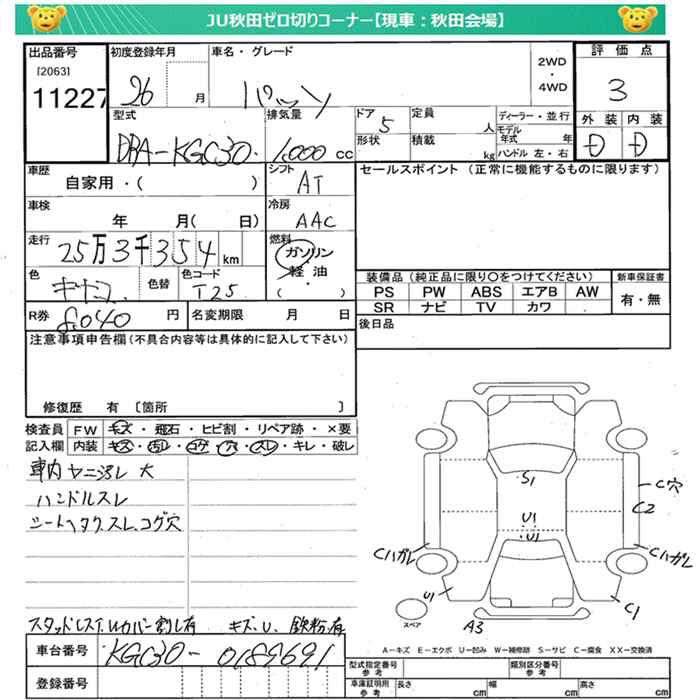 JU秋田ゼロ切りコーナー【現車：秋田会場】
出品番号 初度登録年月 車名・グレード 2WD・4WD 評価点
[2063] 11227 26 月 パッソ 3
型式 排気量 ドア 5 定員 人 ディーラー・並行 外装 内装
DBA-KGC30 1,000 cc 形状 積載 kg モデル年式 年 ハンドル 左・右 D D
車歴 シフト セールスポイント(正常に機能するものに限ります)
自家用・( ) AT
車検 冷房
年 月( 日) AAC
走行 燃料
25万3千354km ガソリン
軽油
・
( )
色 色替 色コード 装備品(純正品に限り○をつけてください) 新車保証書
T25 PS PW ABS エアB AW 有・無
SR ナビ TV カワ
R券 8,040 円 名変期限 月 日 後日品
注意事項申告欄(不具合内容等は具体的に記入して下さい)
修復歴 有 〔箇所 〕
検査員 FW キズ・飛石・ヒビ割・リペア跡・×要
記入欄 内装 キズ・汚レ・コゲ・穴・スレ・キレ・破レ
車内ヤニ汚レ 大
ハンドルスレ
シートヘタク,スレ,コゲ穴
S1
U1
U1
C穴
C2
Cハガレ
Cハガレ
U1
C1
A3
スペア
スタッドレス下,Wカバー割レ有 キズ,U,鉄粉有
A－キズ E－エクボ U－凹み W－補修跡 S－サビ C－腐食 XX－交換済
車台番号 KGC30-0189691
登録番号
型式指定番号 参考 類別区分番号 参考
車庫証明用 参考 長さ cm 幅 cm 高さ cm